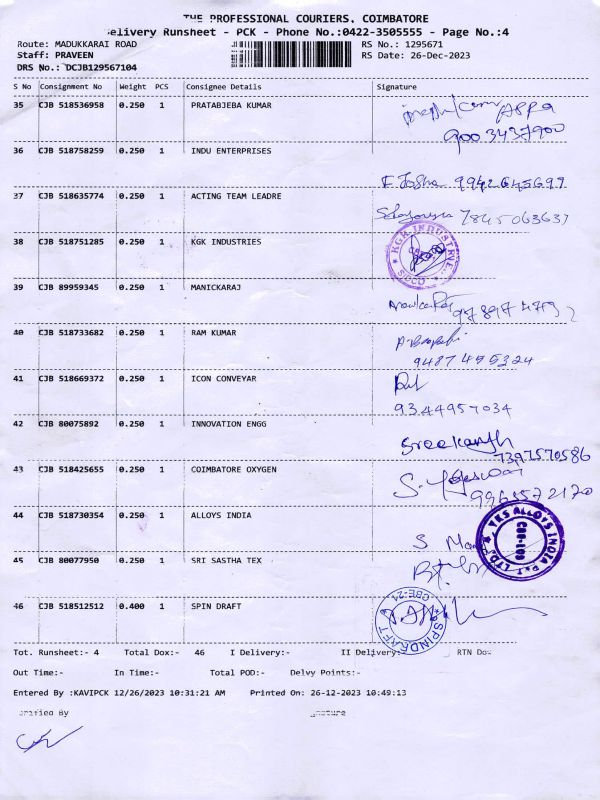 THE PROFESSIONAL COURIERS. COIMBATORE
elivery Runsheet - PCK - Phone No.:0422-3505555 - Page No.:4
Route: MADUKKARAI ROAD RS No.: 1295671
Staff: PRAVEEN RS Date: 26-Dec-2023
DRS No.: DCJB129567104
S No Consignment No Weight PCS Consignee Details Signature
35 CJB 518536958 0.250 1 PRATABJEBA KUMAR
900 3437900
36 CJB 518758259 0.250 1 INDU ENTERPRISES
9942645699
37 CJB 518635774 0.250 1 ACTING TEAM LEADRE
7845063637
38 CJB 518751285 0.250 1 KGK INDUSTRIES
KGK INDUSTRIES SIDCO
39 CJB 89959345 0.250 1 MANICKARAJ
40 CJB 518733682 0.250 1 RAM KUMAR
9487495324
41 CJB 518669372 0.250 1 ICON CONVEYAR
9344957034
42 CJB 80075892 0.250 1 INNOVATION ENGG
Sreekanth
7397570586
43 CJB 518425655 0.250 1 COIMBATORE OXYGEN
44 CJB 518730354 0.250 1 ALLOYS INDIA
ALLOYS INDIA PVT LTD.
45 CJB 80077950 0.250 1 SRI SASTHA TEX
46 CJB 518512512 0.400 1 SPIN DRAFT
SPINDRAFT CBE-21
Tot. Runsheet:- 4 Total Dox:- 46 I Delivery:- II Delivery:- RTN Dox
Out Time:- In Time:- Total POD:- Delvy Points:-
Entered By :KAVIPCK 12/26/2023 10:31:21 AM Printed On: 26-12-2023 10:49:13
By